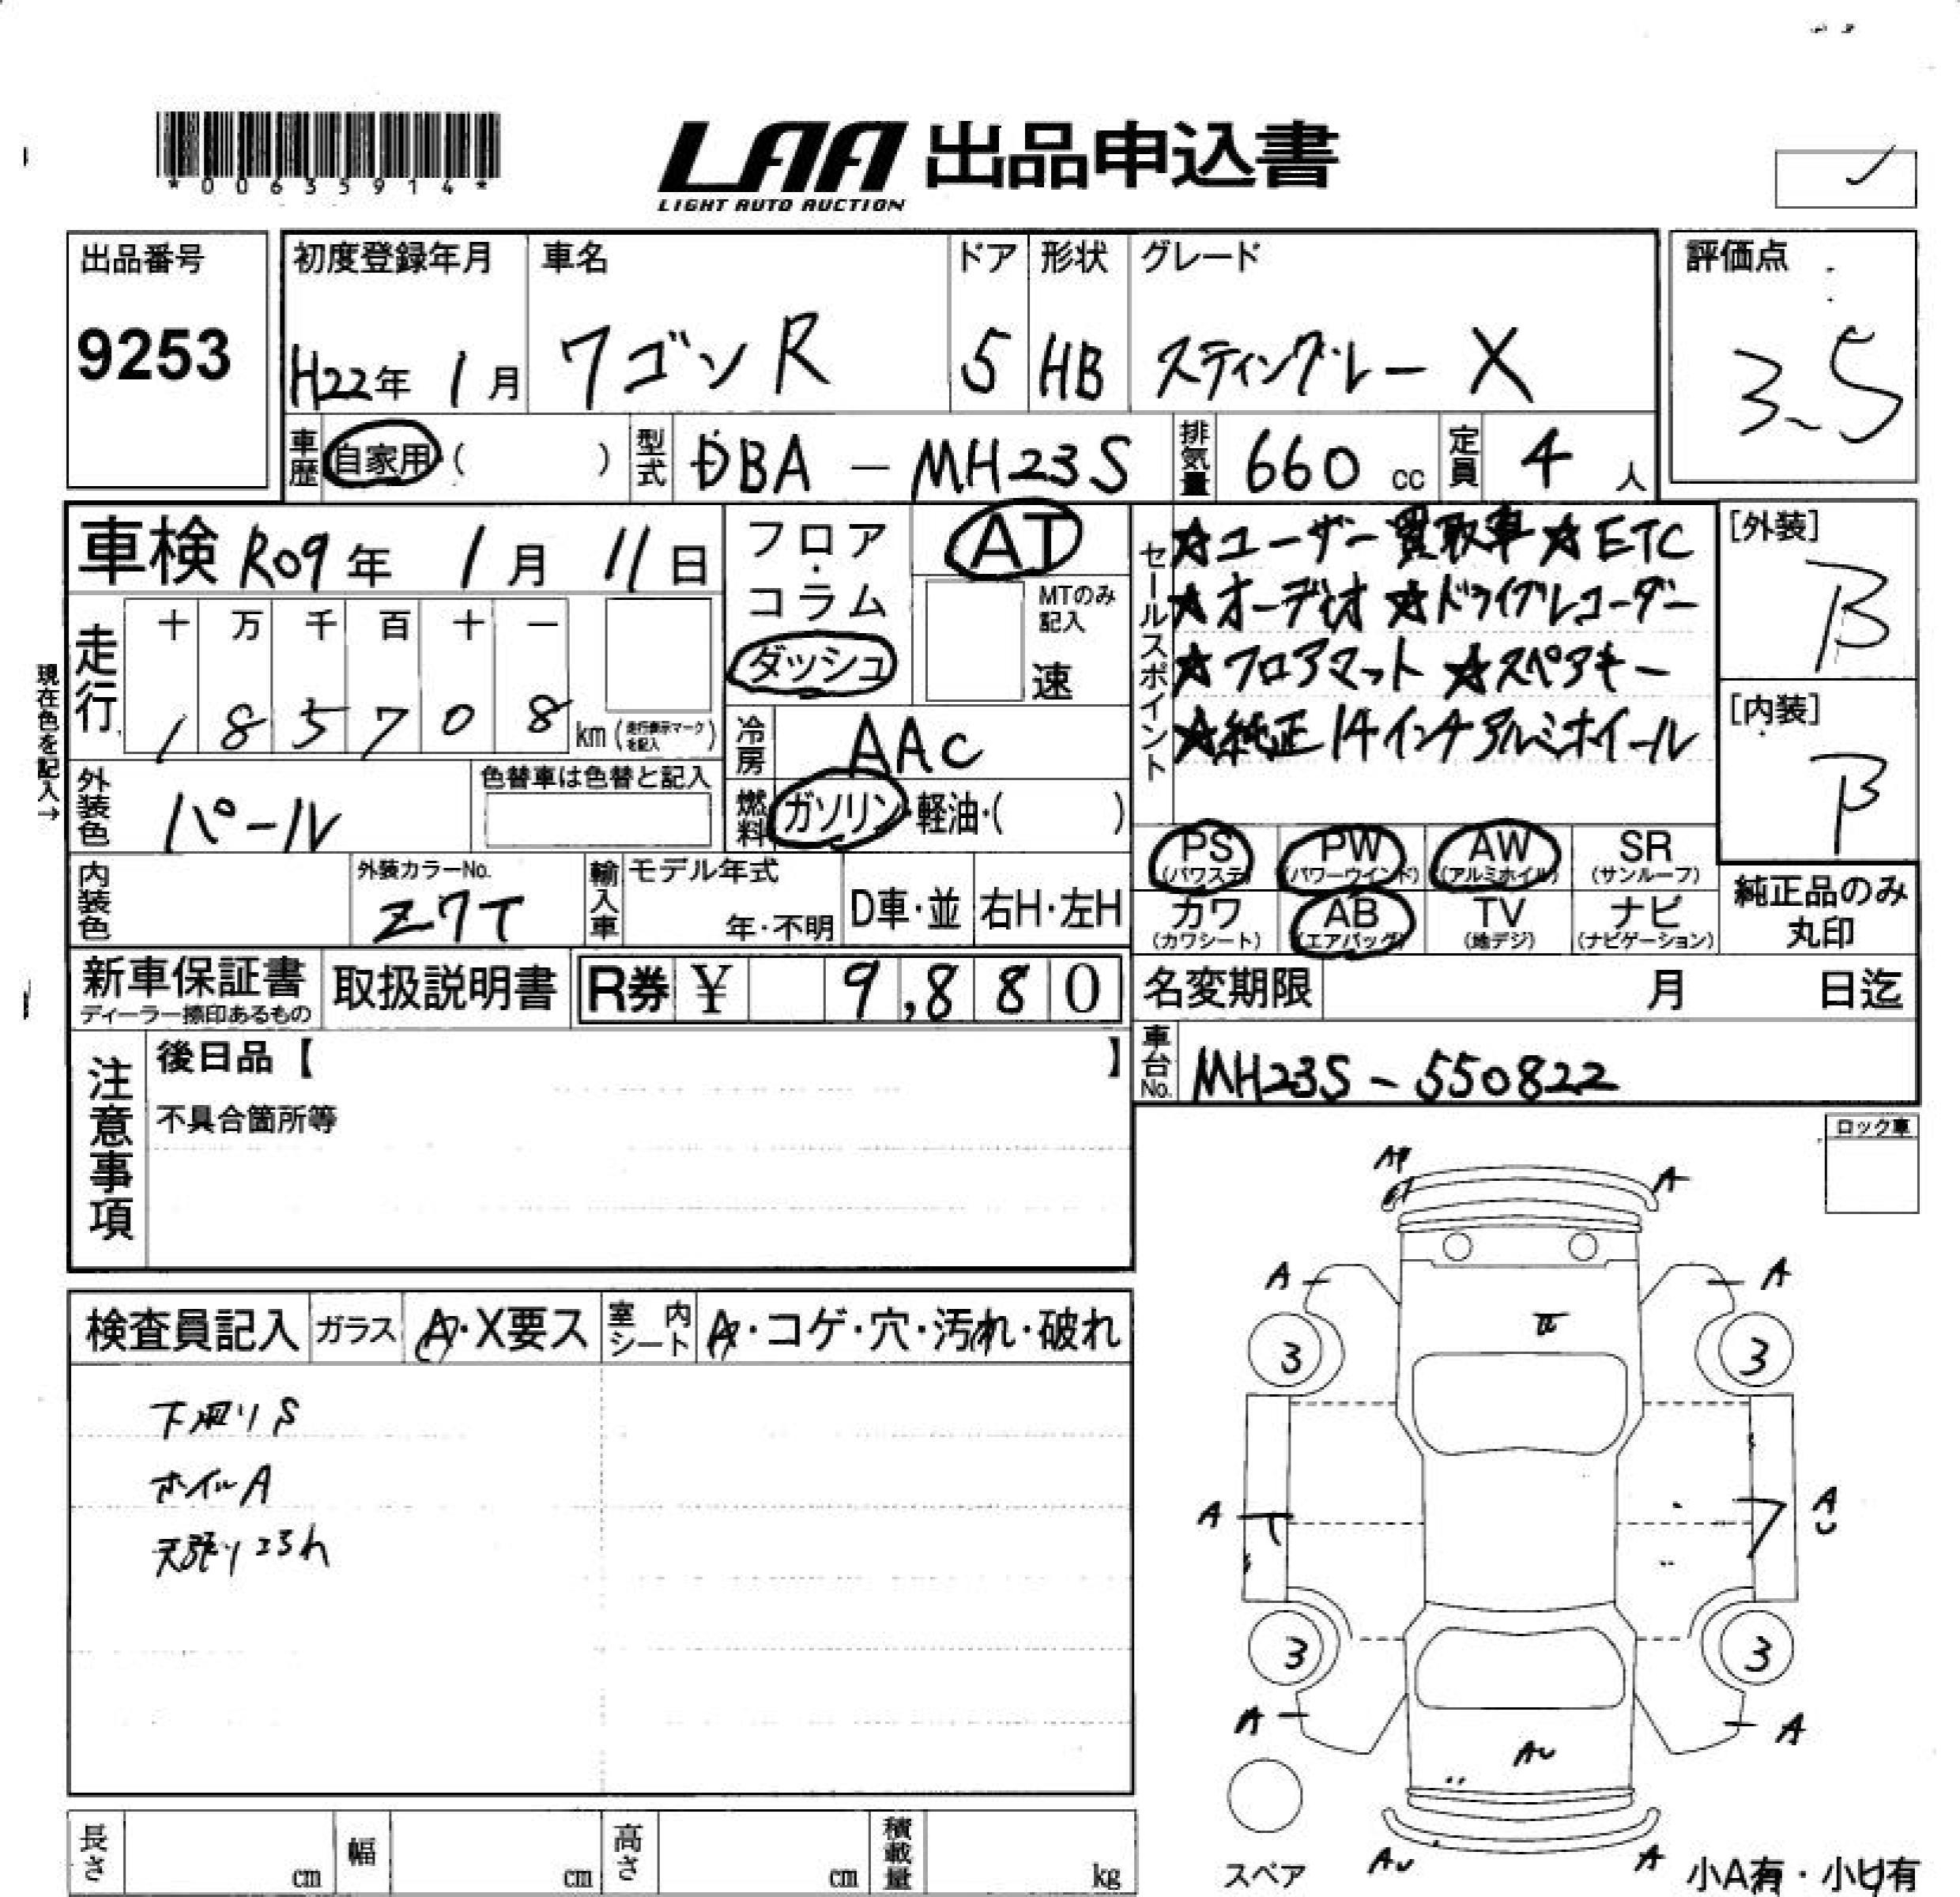 *00635914*
LAA 出品申込書
LIGHT AUTO AUCTION
出品番号
9253
初度登録年月
H22年 1月
車名
ワゴンR
ドア
5
形状
HB
グレード
スティングレー X
評価点
3.5
車歴 自家用 ( )
型式 DBA - MH23S
排気量 660 cc
定員 4 人
車検 R09年 1月 11日
フロア・コラム
ダッシュ
AT
MTのみ記入
速
セールスポイント
☆ユーザー買取車 ☆ETC
☆オーディオ ☆ドライブレコーダー
☆フロアマット ☆スペアキー
☆純正14インチアルミホイール
[外装]
B
[内装]
B
現在色を記入→
走行
十 万 千 百 十 一
1 8 5 7 0 8 km (走行表示マークを記入)
冷房 AAC
外装色 パール
色替車は色替と記入
燃料 ガソリン・軽油・( )
PS (パワステ)
PW (パワーウインド)
AW (アルミホイル)
SR (サンルーフ)
カワ (カワシート)
AB (エアバッグ)
TV (地デジ)
ナビ (ナビゲーション)
純正品のみ丸印
内装色
外装カラーNo.
Z7T
輸入車
モデル年式
年・不明
D車・並
右H・左H
新車保証書
ディーラー捺印あるもの
取扱説明書
R券 ¥ 9,880
名変期限 月 日迄
車台No. MH23S-550822
注意事項
後日品【 】
不具合箇所等
ロック車
検査員記入
ガラス A・X要ス
室内シート A・コゲ・穴・汚れ・破れ
下回りS
ホイルA
天張りヨゴレ
A
A A
3 3
A A
U
3 3
A A
AU
AU A
スペア
小A有・小U有
長さ cm
幅 cm
高さ cm
積載量 kg